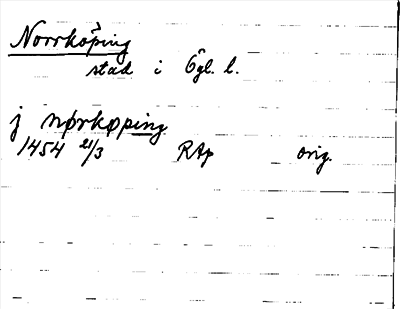 Norrköping
stad i Ögl. l.
j nørkøping
1454 21/3 RAp orig.